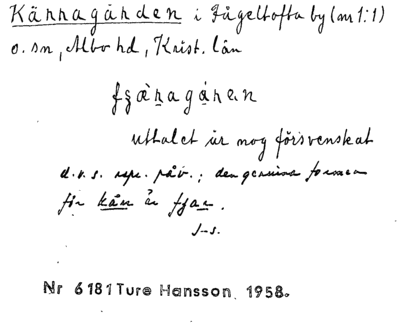 Kärragården i Fågeltofta by (m 1:1)
o. sn, Albo hd, Krist. län
uttalet är nog försvenskat
d.v.s. rspr. påv.; den genuina formen
för kärr är
J-s.
Nr 6181 Ture Hansson, 1958.